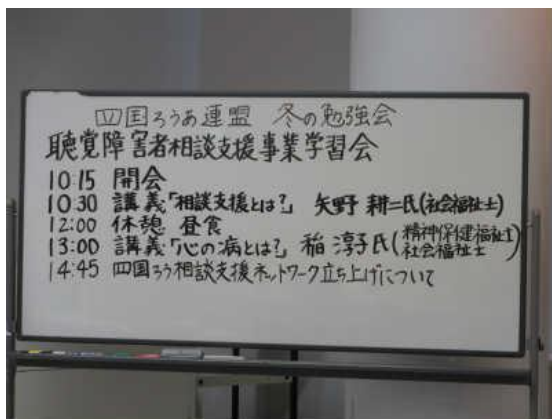 四国ろうあ連盟 冬の勉強会
聴覚障害者相談支援事業学習会
10:15 開会
10:30 講義「相談支援とは?」 矢野 耕二氏(社会福祉士)
12:00 休憩 昼食
13:00 講義「心の病とは?」 稲 淳子氏(精神保健福祉士
社会福祉士)
14:45 四国ろう相談支援ネットワーク立ち上げについて